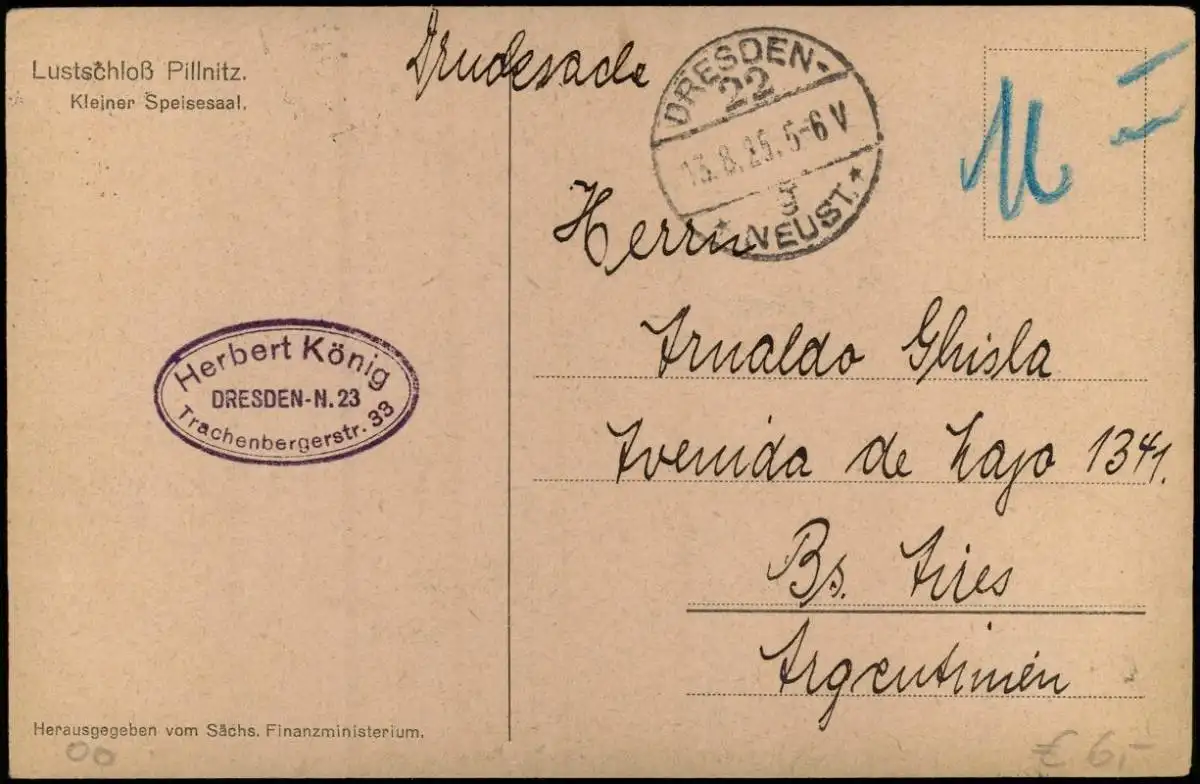 Lustschloß Pillnitz.
Kleiner Speisesaal.
Drucksache
DRESDEN-
22
13.8.25.5-6 V
g
* NEUST. *
Herrn
Arnaldo Ghisla
Avenida de Mayo 1341.
Bs. Aires
Argentinien
Herbert König
DRESDEN-N.23
Trachenbergerstr. 33
Herausgegeben vom Sächs. Finanzministerium.
€ 6,-